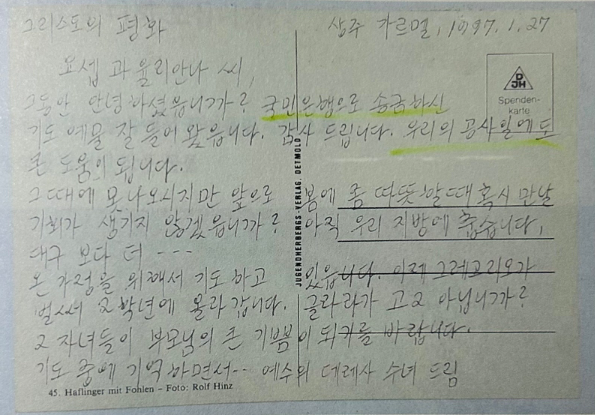 그리스도의 평화 상주 가르멜, 1997.1.27
요셉과 율리안나 씨,
그동안 안녕하셨읍니까? 국민은행으로 송금하신
기도 예물 잘 들어 왔읍니다. 감사 드립니다. 우리의 공사일에도
큰 도움이 됩니다.
그때에 못 나오시지만 앞으로 봄에 좀 따뜻할 때 혹시 만날
기회가 생기지 않겠읍니까? 아직 우리 지방에 춥습니다,
대구 보다 더 ---
온 가정을 위해서 기도하고 있읍니다. 이제 그레고리오가
벌써 2학년에 올라갑니다. 글라라가 고2 아닙니까?
2 자녀들이 부모님의 큰 기쁨이 되기를 바랍니다.
기도 중에 기억하면서-- 예수의 데레사 수녀 드림
DJH
Spenden-
karte
JUGENDHERBERGS-VERLAG, DETMOLD
45. Haflinger mit Fohlen – Foto: Rolf Hinz